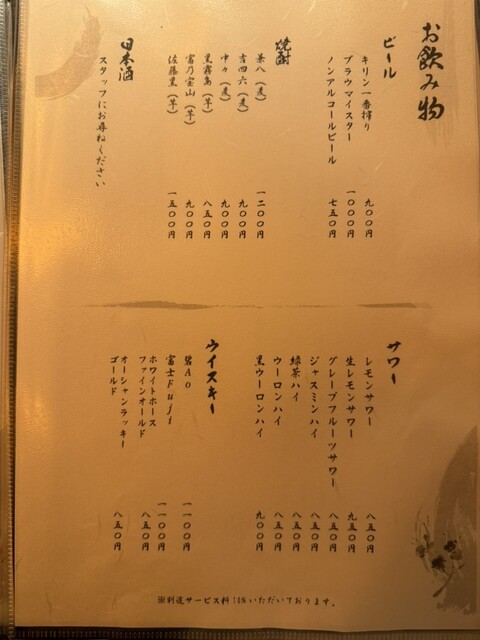 お飲み物
ビール
キリン一番搾り 九〇〇円
ブラウマイスター 一〇〇〇円
ノンアルコールビール 七五〇円
焼酎
兼八(麦) 一二〇〇円
吉四六(麦) 九〇〇円
中々(麦) 九〇〇円
黒霧島(芋) 八五〇円
富乃宝山(芋) 九〇〇円
佐藤黒(芋) 一五〇〇円
日本酒
スタッフにお尋ねください
サワー
レモンサワー 八五〇円
生レモンサワー 九五〇円
グレープフルーツサワー 八五〇円
ジャスミンハイ 八五〇円
緑茶ハイ 八五〇円
ウーロンハイ 八五〇円
黒ウーロンハイ 九〇〇円
ウイスキー
碧Ao 一一〇〇円
富士Fuji 一一〇〇円
ホワイトホース
ファインオールド 八五〇円
オーシャンラッキー
ゴールド 八五〇円
※別途サービス料
いただいております。